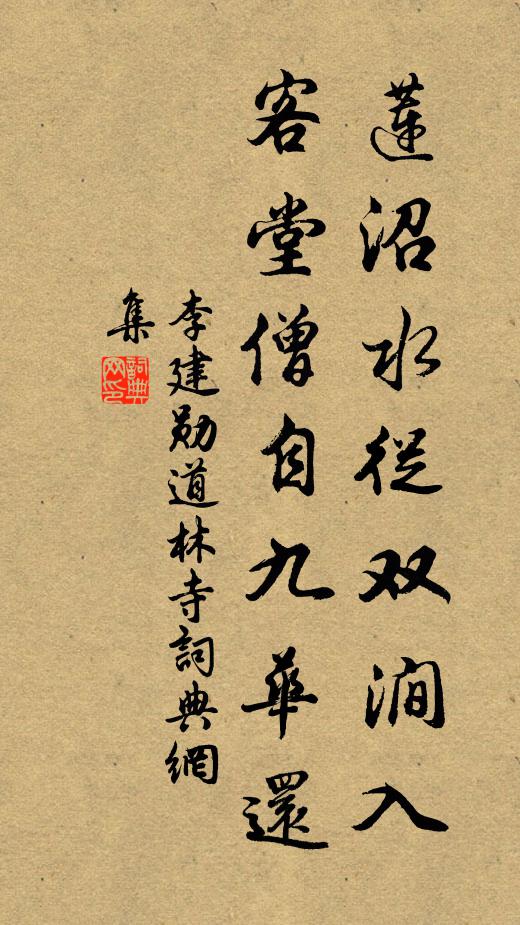 蓮沼水從双澗入
客堂僧自九華還
李建勛道林寺詞典網
集
詞典网印